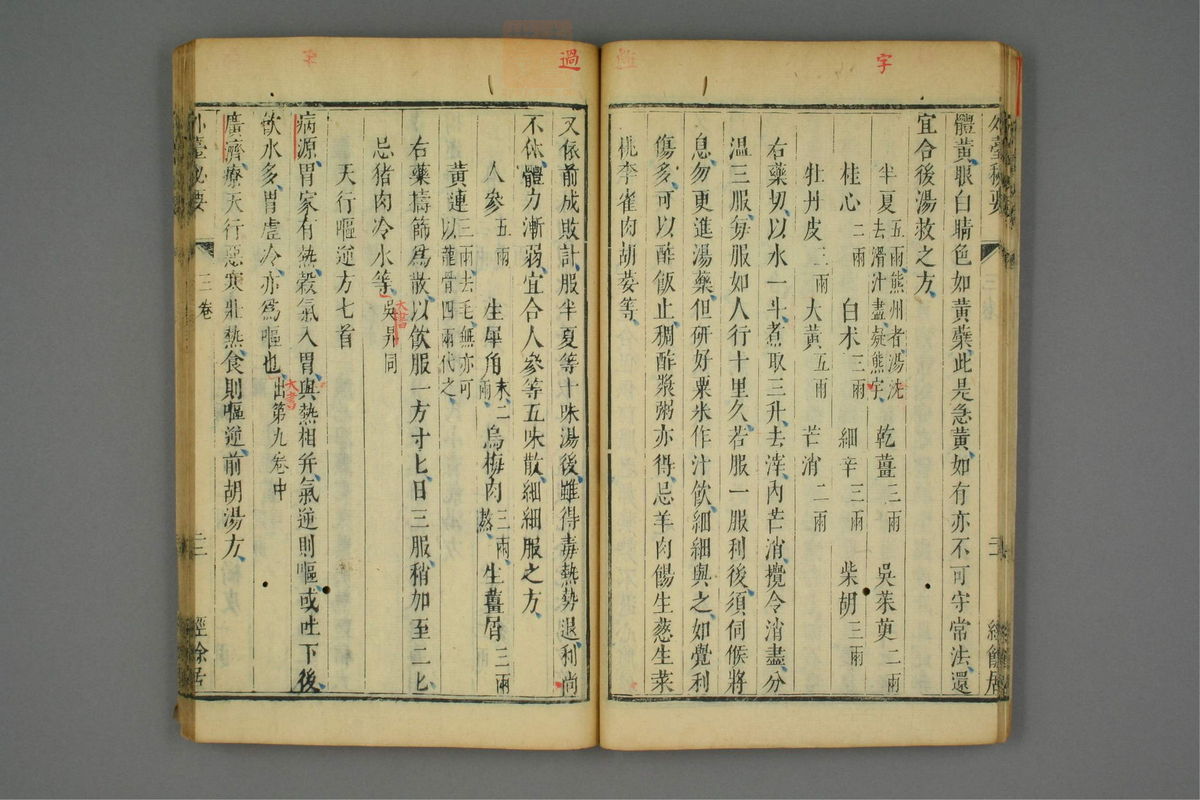 字
外臺秘要
三卷
經餘居
體黃眼白睛色如黃蘗此是急黃如有亦不可守常法還
宜合後湯救之方
半夏五兩熊州者湯洗去滑汁盡凝熊字 乾薑三兩 吳茱萸二兩
桂心二兩 白朮三兩 細辛三兩 柴胡三兩
牡丹皮二兩 大黃五兩 芒消二兩
右藥切以水一斗煮取三升去滓內芒消攪令消盡分
溫三服每服如人行十里久若服一服利後須伺候將
息勿更進湯藥但研好粟米作汁飲細細與之如覺利
傷多可以酢飲止稠酢漿粥亦得忌羊肉餳生蔥生菜
桃李雀肉胡荽等
過
又依前成敗計服半夏等十味湯後雖得毒熱勢退利尚
不依體力漸弱宜合人參等五味散細細服之方
人參五兩 生犀角末二兩 烏梅肉三兩熬 生薑屑三兩
黃連三兩去毛無亦可以龍骨四兩代之
右藥擣篩為散以飲服一方寸匕日三服稍加至二匕
忌豬肉冷水等吳昇同
大書
天行嘔逆方七首
病源胃家有熱穀氣入胃與熱相并氣逆則嘔或吐下後
飲水多胃虛冷亦為嘔也出第九卷中
大書
廣濟療天行惡寒壯熱食則嘔逆前胡湯方
外臺秘要
三卷
經餘居